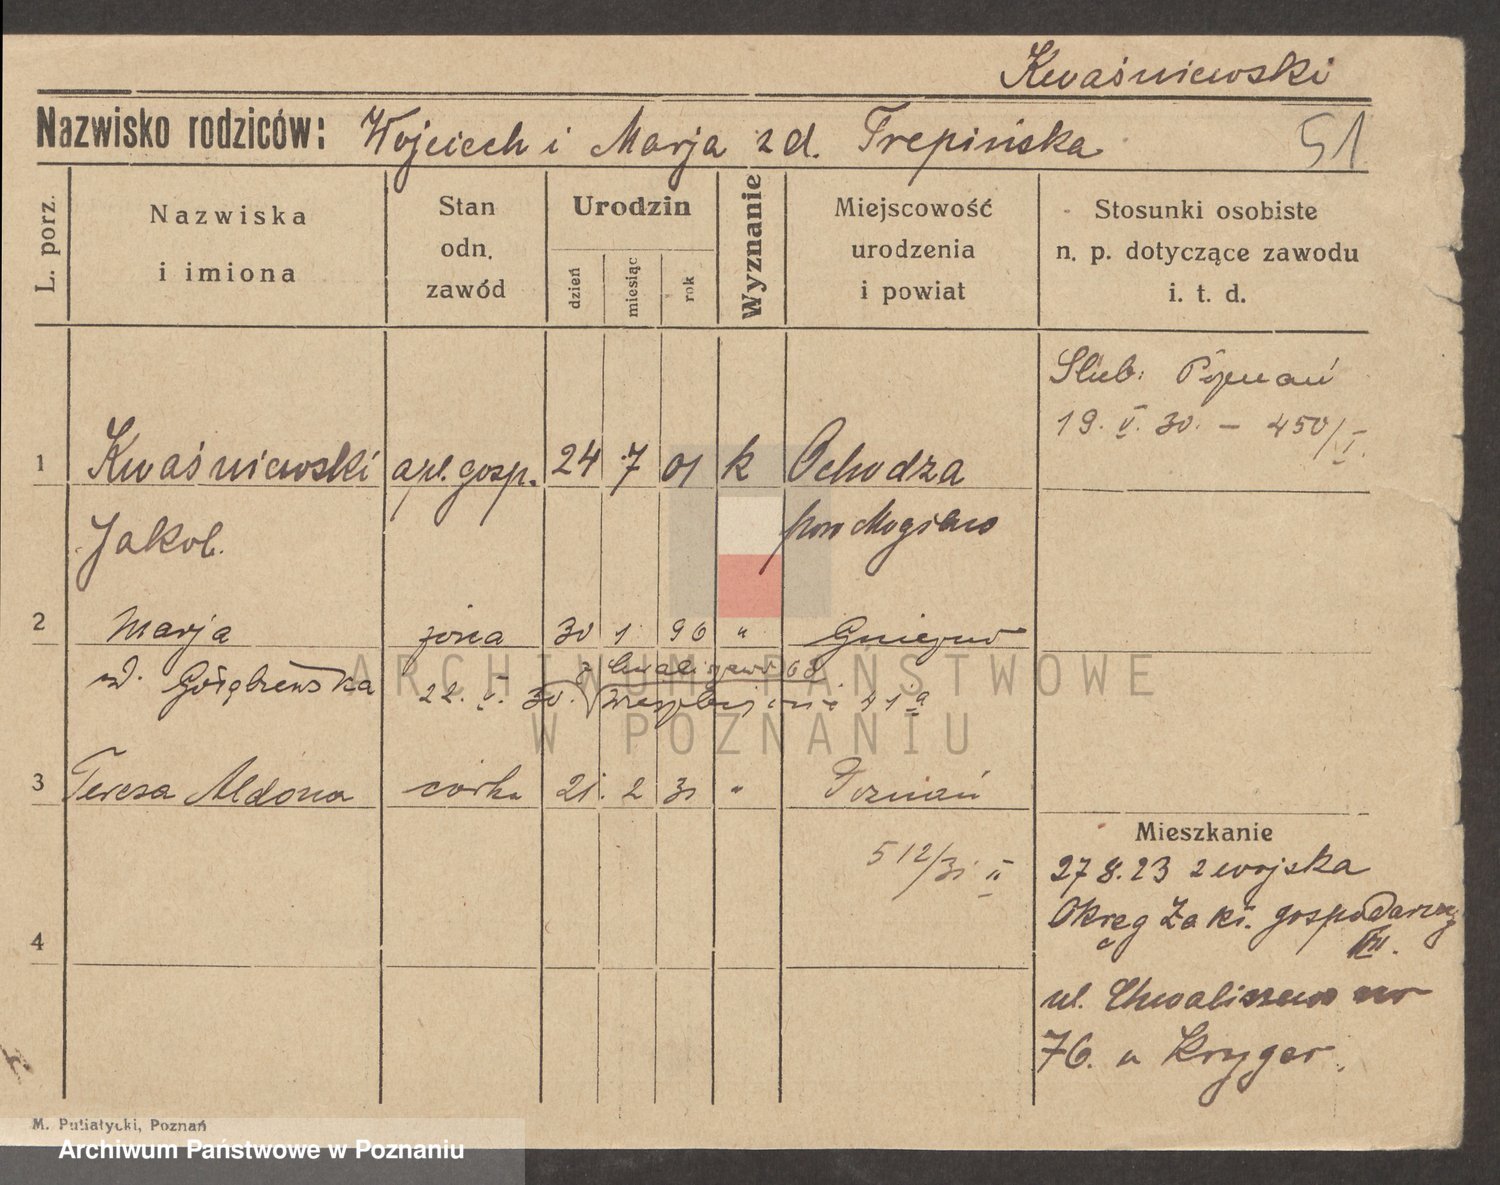 Kwaśniewski
Nazwisko rodziców: Wojciech i Marja z d. Trepińska
51
L. porz.
Nazwiska
i imiona
Stan
odn.
zawód
Urodzin
dzień
miesiąc
rok
Wyznanie
Miejscowość
urodzenia
i powiat
Stosunki osobiste
n. p. dotyczące zawodu
i. t. d.
Ślub: Poznań
19. V. 30. – 450/I.
1 Kwaśniewski apl. gosp. 24 7 01 k Ochodza
Jakob. pow Mogilno
2 Marja żona 30 1 96 " Gniezno
z Chwaliszewo 68
22. V. 30. 41a
3 Teresa Aldona córka 21. 2 31 " Poznań
512/31 II
4
Mieszkanie
27 8. 23 z wojska
Okręg Zakł. gospodarczy
VII.
ul. Chwaliszewo
76. u Kryger.
M. Putiatycki, Poznań
ARCHIWUM PAŃSTWOWE
W POZNANIU
Archiwum Państwowe w Poznaniu